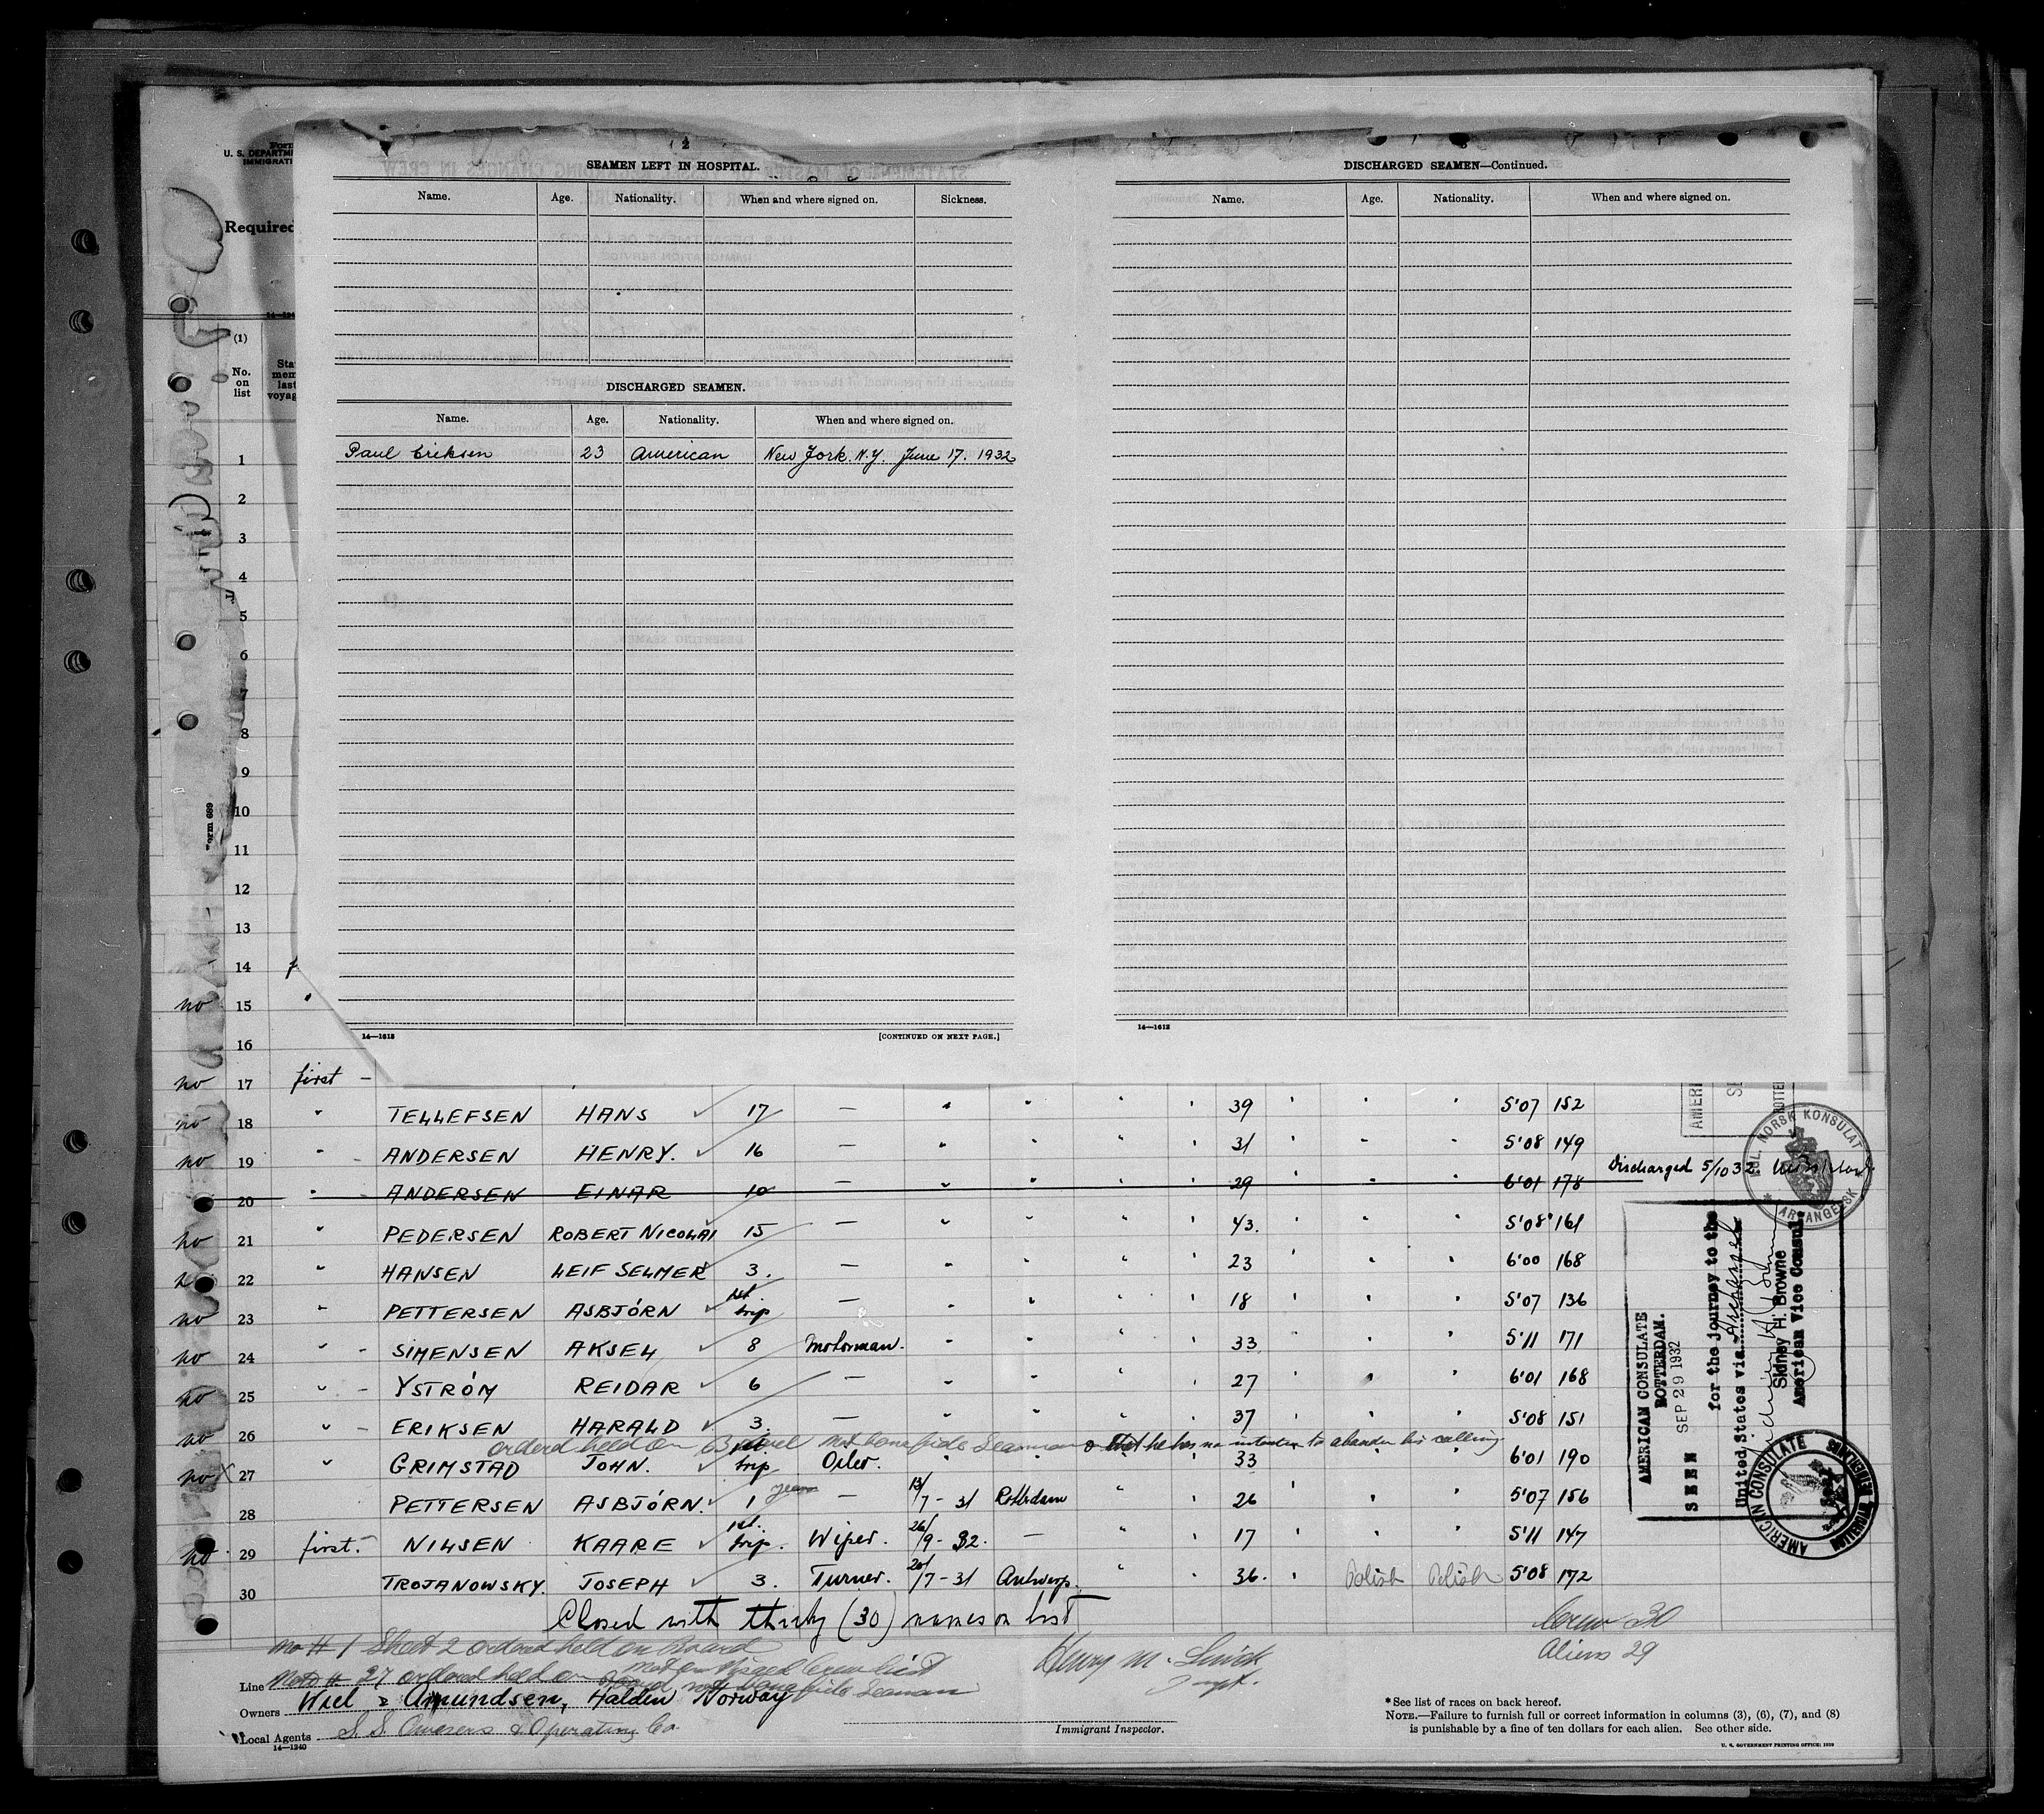 2
SEAMEN LEFT IN HOSPITAL.
Name. Age. Nationality. When and where signed on. Sickness.
DISCHARGED SEAMEN.
Name. Age. Nationality. When and where signed on.
Paul Eriksen 23 American New York. N.Y. June 17. 1932
14—1613 [CONTINUED ON NEXT PAGE.]
DISCHARGED SEAMEN—Continued.
Name. Age. Nationality. When and where signed on.
14—1613
Form
U. S. DEPARTME
IMMIGRATI
Required
14—1240
(1)
No. on list
Sta
mem
last
voyag
Form 689
1
2
3
4
5
6
7
8
9
10
11
12
13
14
no 15
16
no 17 first —
no 18 " TELLEFSEN HANS 17 — " " " " 39 " " " 5'07 152
no 19 " - ANDERSEN HENRY. 16 — " " " " 31 " " " 5'08 149
20 " - ANDERSEN EINAR 10 — " " " " 29 " " " 6'01 178 Discharged 5/10 32
no 21 " PEDERSEN ROBERT NICOLAI 15 — " " " " 43. " " " 5'08 161
22 " HANSEN LEIF SELMER 3. — " " " " 23 " " " 6'00 168
no 23 " PETTERSEN ASBJÓRN 1st trip — " " " " 18 " " " 5'07 136
no 24 " - SIMENSEN AKSEL 8 Motorman. " " " " 33 " " " 5'11 171
no 25 " - YSTRÓM REIDAR 6 — " " " " 27 " " " 6'01 168
no 26 " - ERIKSEN HARALD 3. — " " " " 37 " " " 5'08 151
orderd held on Board not bonafide Seaman he has no intention to abandon his calling
no x 27 " GRIMSTAD JOHN. 1st trip Oiler. " " " " 33 " " " 6'01 190
28 PETTERSEN ASBJÓRN. 1 year — 13/7 - 31 Rotterdam " " 26 " " " 5'07 156
no 29 first. — NILSEN KAARE 1st. trip. Wiper. 26/9 - 32. — " " 17 " " " 5'11 147
30 TROJANOWSKY. JOSEPH 3. Turner. 20/7 - 31 Antwerp. " " 36. " Polish Polish 5'08 172
Closed with thirty (30) names on list
Crew 30
Aliens 29
no # 1 Sheet 2 ordered held on Board
not on Visaed Crew list
Note # 27 ordered held on Board not bonafide Seaman
Line
Owners Wiel & Amundsen, Halden Norway
Local Agents
14—1240
Henry M.
Immigrant Inspector.
*See list of races on back hereof.
NOTE.—Failure to furnish full or correct information in columns (3), (6), (7), and (8)
is punishable by a fine of ten dollars for each alien. See other side.
U. S. GOVERNMENT PRINTING OFFICE: 1929
AMERI
ROTTER
KGL. NORSK KONSULAT
ARCHANGELSK
AMERICAN CONSULATE
ROTTERDAM.
SEEN SEP 29 1932
for the journey to the
United States via Archangel
Sidney H. Browne
Sidney H. Browne
American Vice Consul.
AMERICAN CONSULATE
ROTTERDAM NETHERLANDS